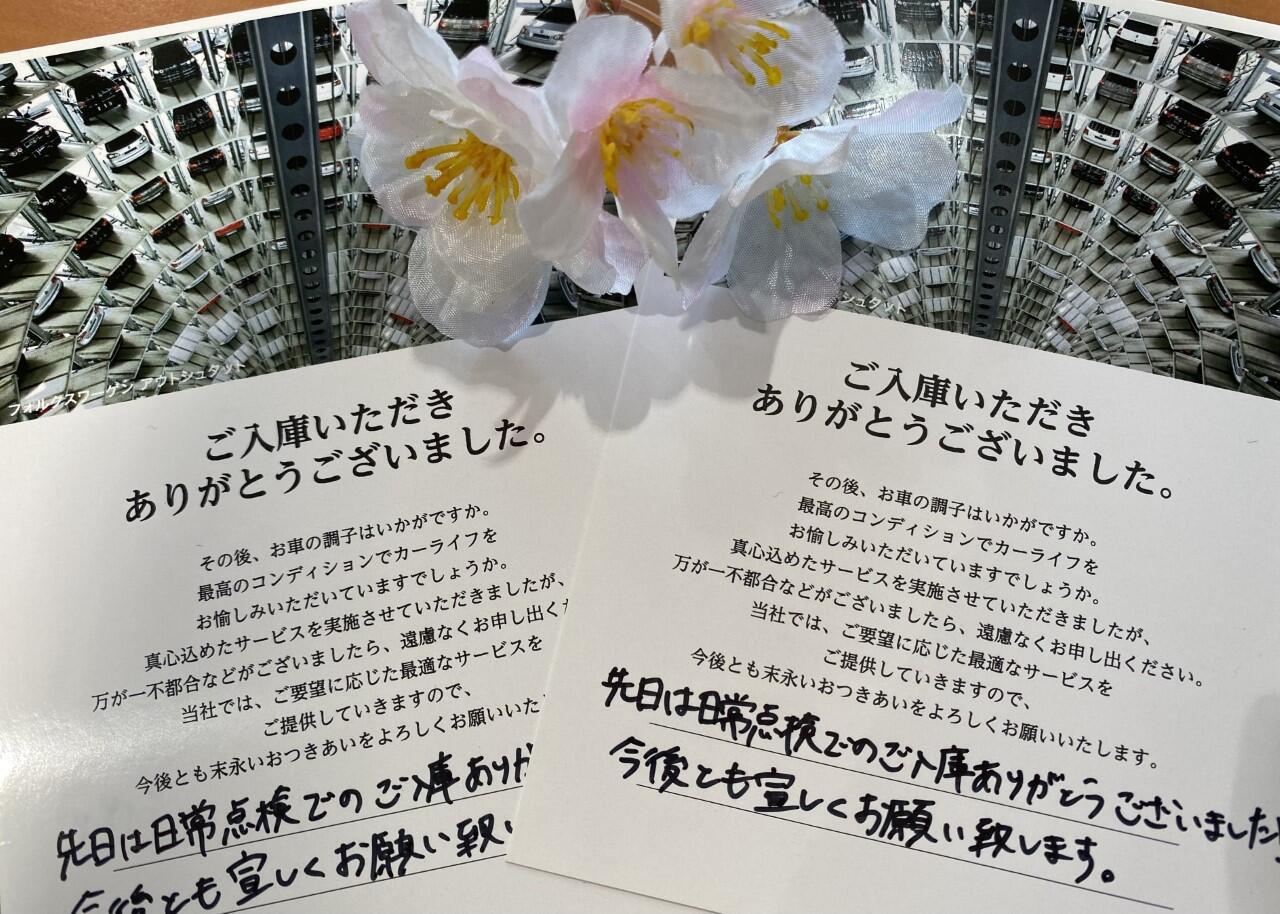 フォルクスワーゲン アウトシュタット
ご入庫いただき
ありがとうございました。
その後、お車の調子はいかがですか。
最高のコンディションでカーライフを
お愉しみいただいていますでしょうか。
真心込めたサービスを実施させていただきましたが、
万が一不都合などがございましたら、遠慮なくお申し出くだ
当社では、ご要望に応じた最適なサービスを
ご提供していきますので、
今後とも末永いおつきあいをよろしくお願いいた
先日は日常点検でのご入庫ありが
今後とも宜しくお願い致し
シュタット
ご入庫いただき
ありがとうございました。
その後、お車の調子はいかがですか。
最高のコンディションでカーライフを
お愉しみいただいていますでしょうか。
真心込めたサービスを実施させていただきましたが、
万が一不都合などがございましたら、遠慮なくお申し出ください。
当社では、ご要望に応じた最適なサービスを
ご提供していきますので、
今後とも末永いおつきあいをよろしくお願いいたします。
先日は日常点検でのご入庫ありがとうございました!
今後とも宜しくお願い致します。